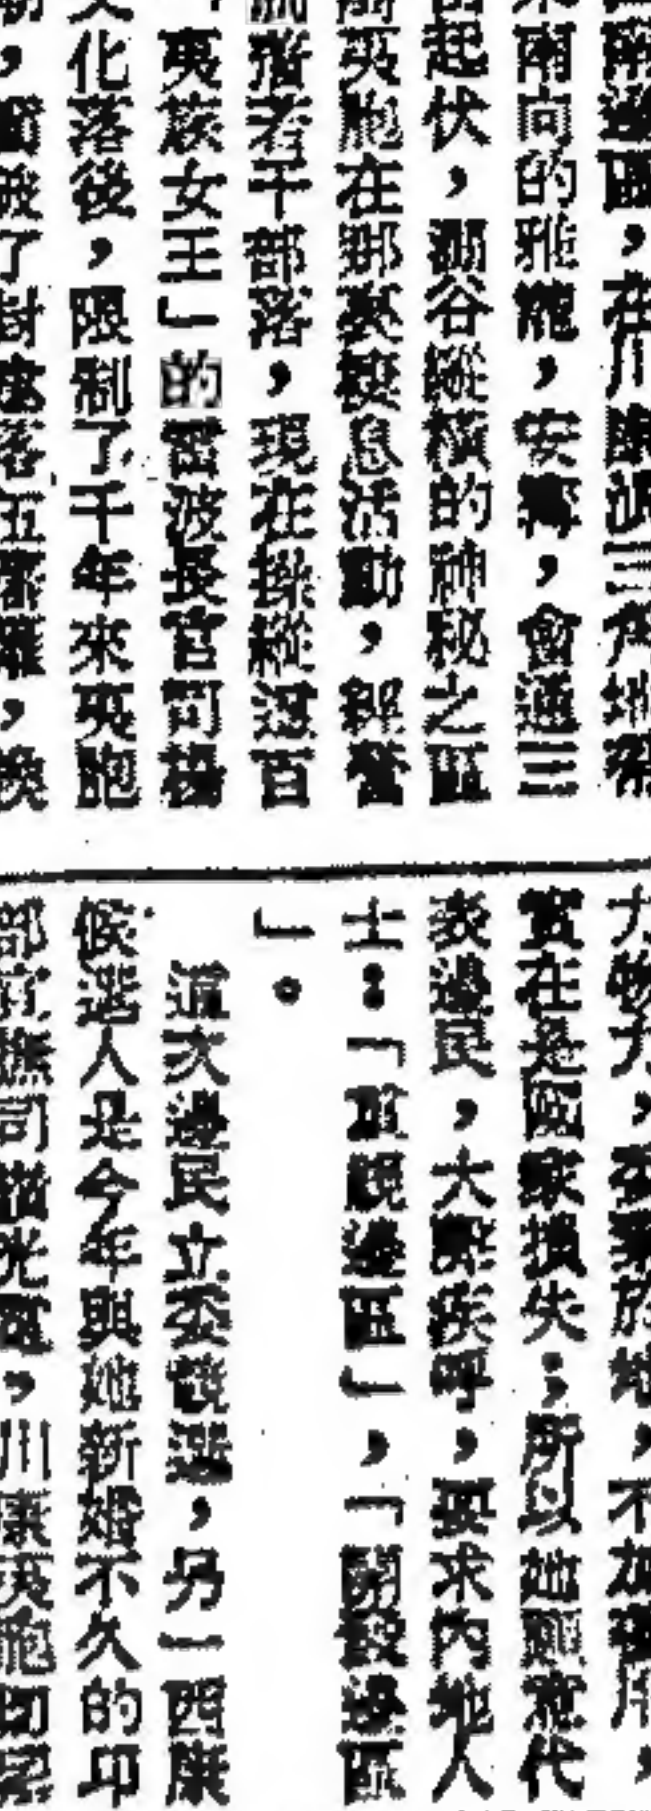 邊區,在川康滇三角地帶
南向的雅礱,安寧,會通三
起伏,澗谷縱橫的神秘之區
夷胞在那裏棲息活動,經營
着若干部落,現在操縱過百
夷族女王」的雷波長官司楊
化落後,限制了千年來夷胞
破了封
力物力,委棄於地,不加利用,
實在是國家損失;所以她願意代
表邊民,大聲疾呼,要求內地人
士:「重視邊區」,「開發邊區
」。
這次邊民立委競選,另一西康
候選人是今年與她新婚不久的邛
部宣撫司嶺光電,川康夷胞切